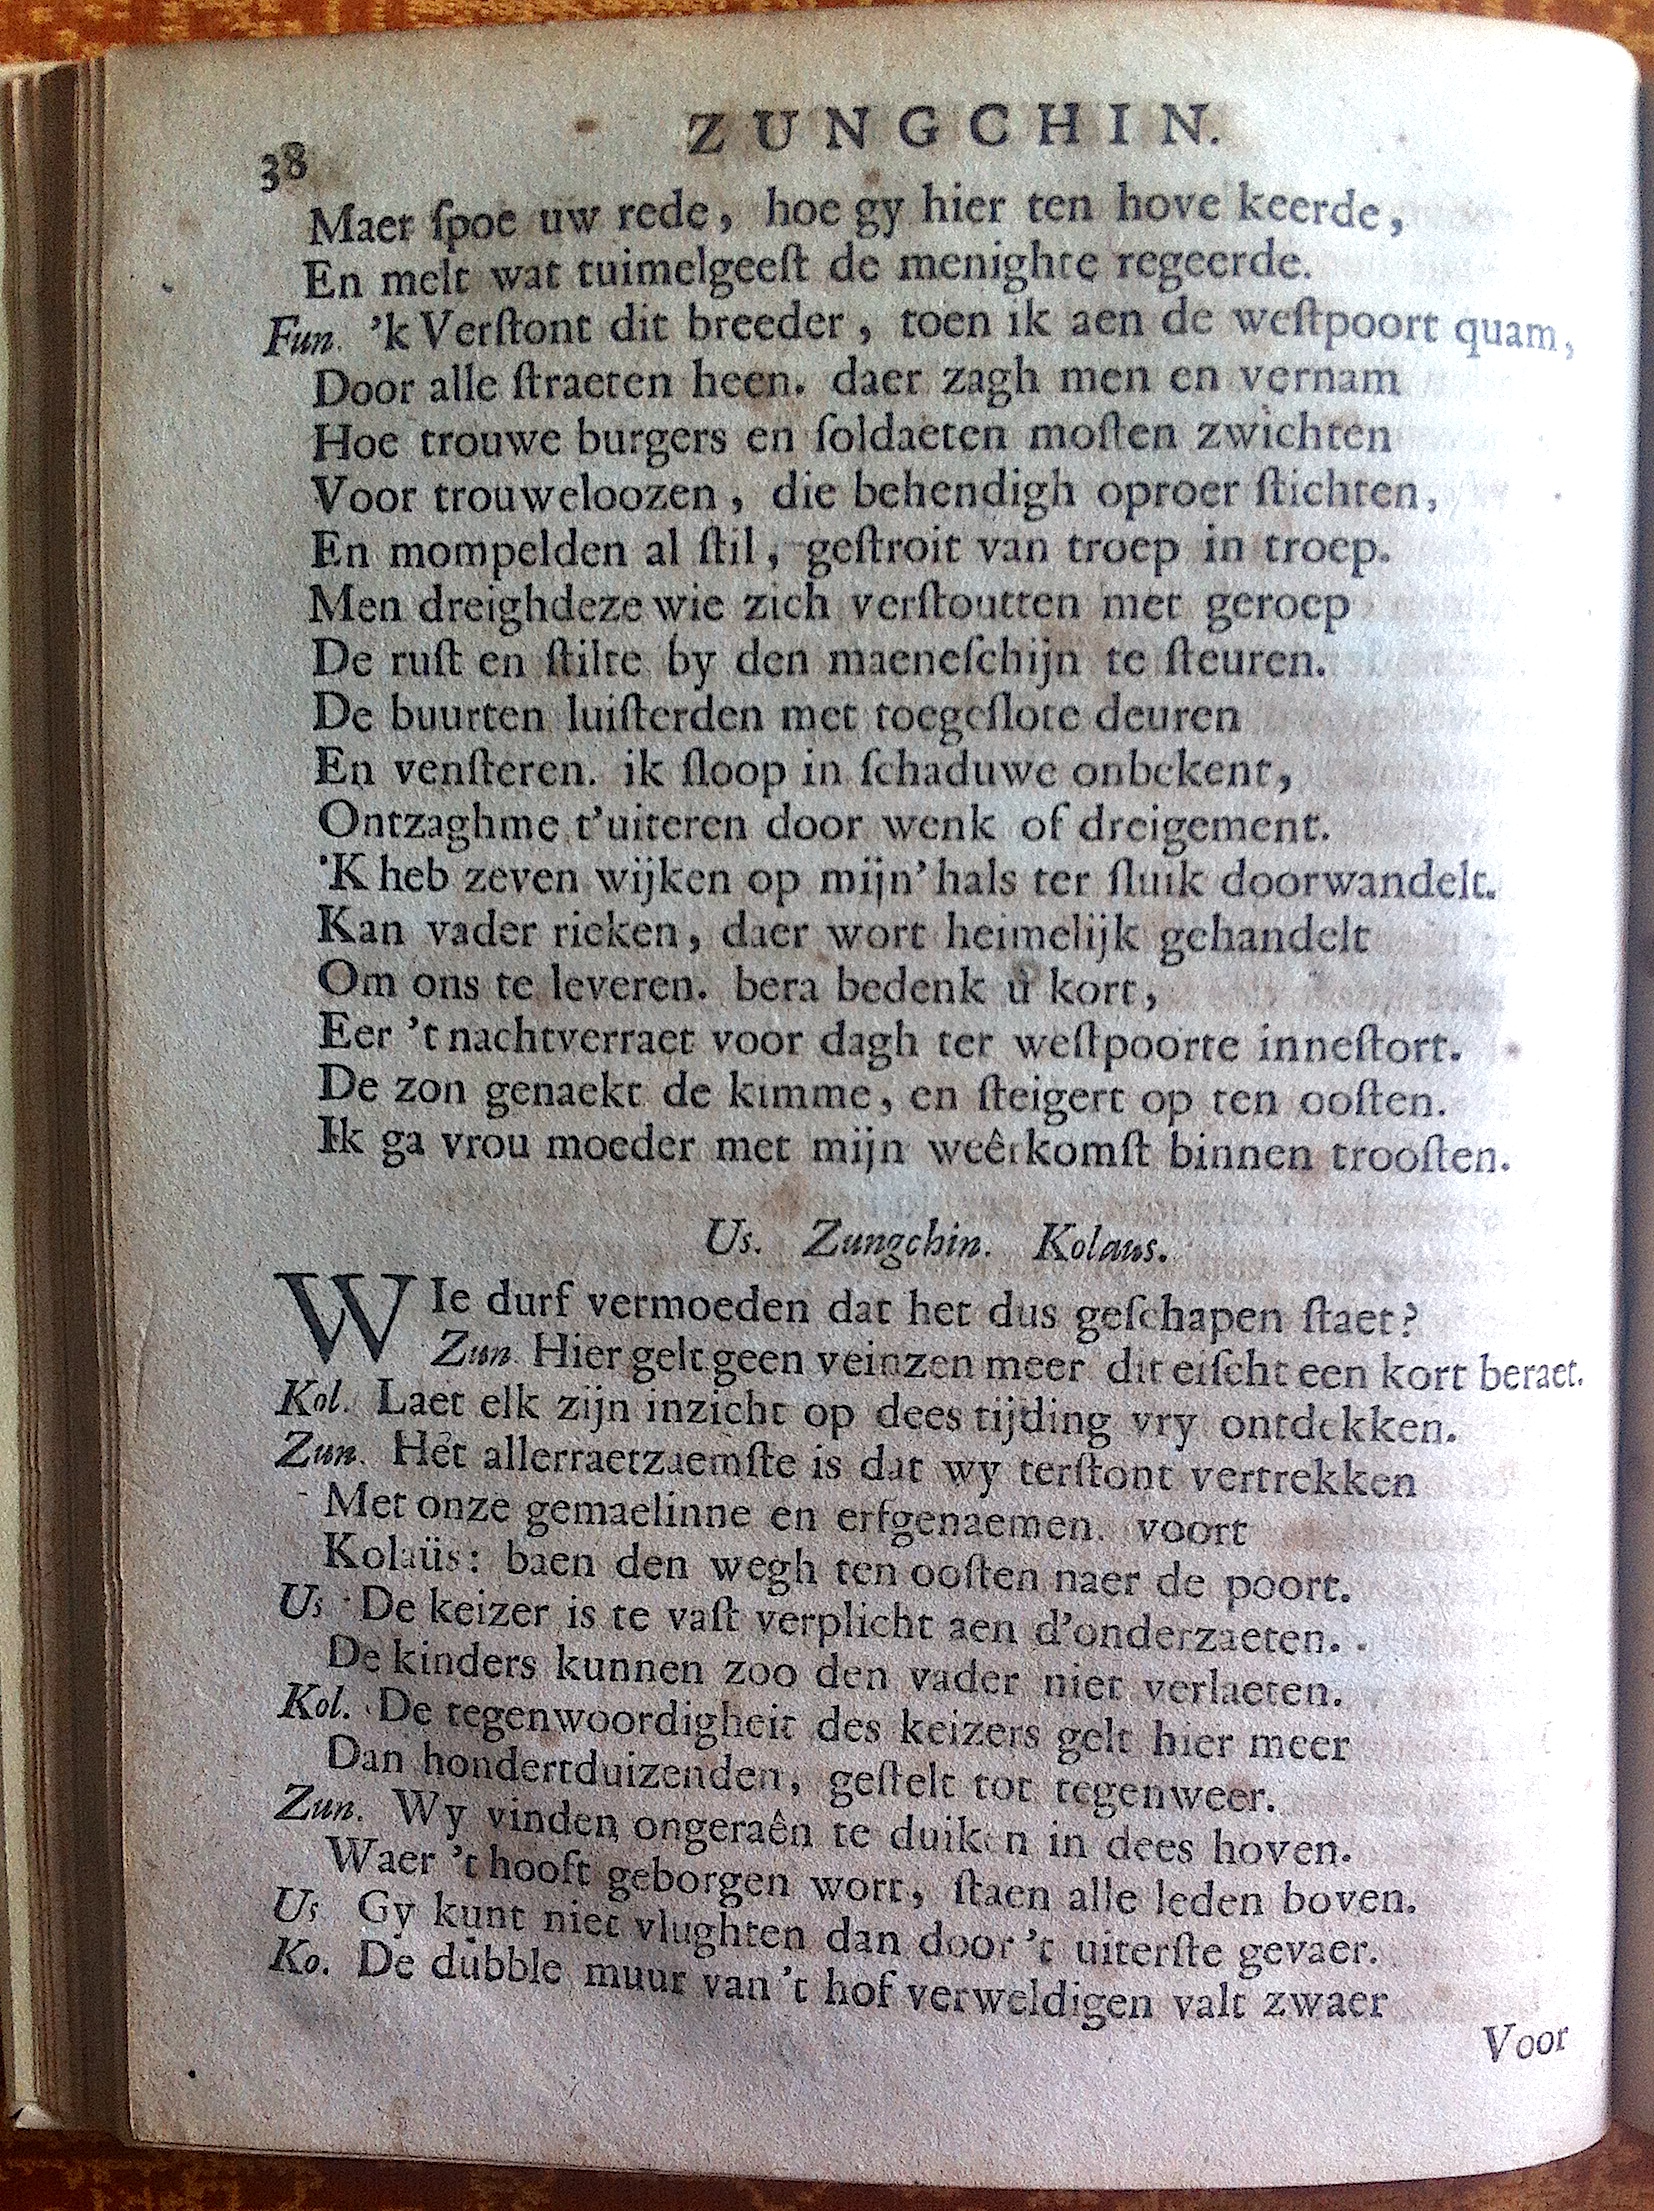 38
ZUNGCHIN.
Maer ſpoe uw rede, hoe gy hier ten hove keerde,
En melt wat tuimelgeeſt de menighte regeerde.
Fun. ’k Verſtont dit breeder, toen ik aen de weſtpoort quam,
Door alle ſtraeten heen. daer zagh men en vernam
Hoe trouwe burgers en ſoldaeten moſten zwichten
Voor trouweloozen, die behendigh oproer ſtichten,
En mompelden al ſtil, geſtroit van troep in troep.
Men dreighdeze wie zich verſtoutten met geroep
De ruſt en ſtilte by den maeneſchijn te ſteuren.
De buurten luiſterden met toegeſlote deuren
En venſteren. ik ſloop in ſchaduwe onbekent,
Ontzaghme t’uiteren door wenk of dreigement.
’K heb zeven wijken op mijn’ hals ter ſluik doorwandelt.
Kan vader rieken, daer wort heimelijk gehandelt
Om ons te leveren. bera bedenk u kort,
Eer ’t nachtverraet voor dagh ter weſtpoorte inneſtort.
De zon genaekt de kimme, en ſteigert op ten ooſten.
Ik ga vrou moeder met mijn weêrkomſt binnen trooſten.
Us. Zungchin. Kolaus.
WIe durf vermoeden dat het dus geſchapen ſtaet?
Zun. Hier gelt geen veinzen meer dit eiſcht een kort beraet.
Kol. Laet elk zijn inzicht op dees tijding vry ontdekken.
Zun. Het allerraetzaemſte is dat wy terſtont vertrekken
Met onze gemaelinne en erfgenaemen. voort
Kolaüs: baen den wegh ten ooſten naer de poort.
Us De keizer is te vaſt verplicht aen d’onderzaeten.
De kinders kunnen zoo den vader niet verlaeten.
Kol. De tegenwoordigheit des keizers gelt hier meer
Dan hondertduizenden, geſtelt tot tegenweer.
Zun. Wy vinden ongeraên te duiken in dees hoven.
Waer ’t hooft geborgen wort, ſtaen alle leden boven.
Us Gy kunt niet vlughten dan door ’t uiterſte gevaer.
Ko. De dubble muur van ’t hof verweldigen valt zwaer
Voor